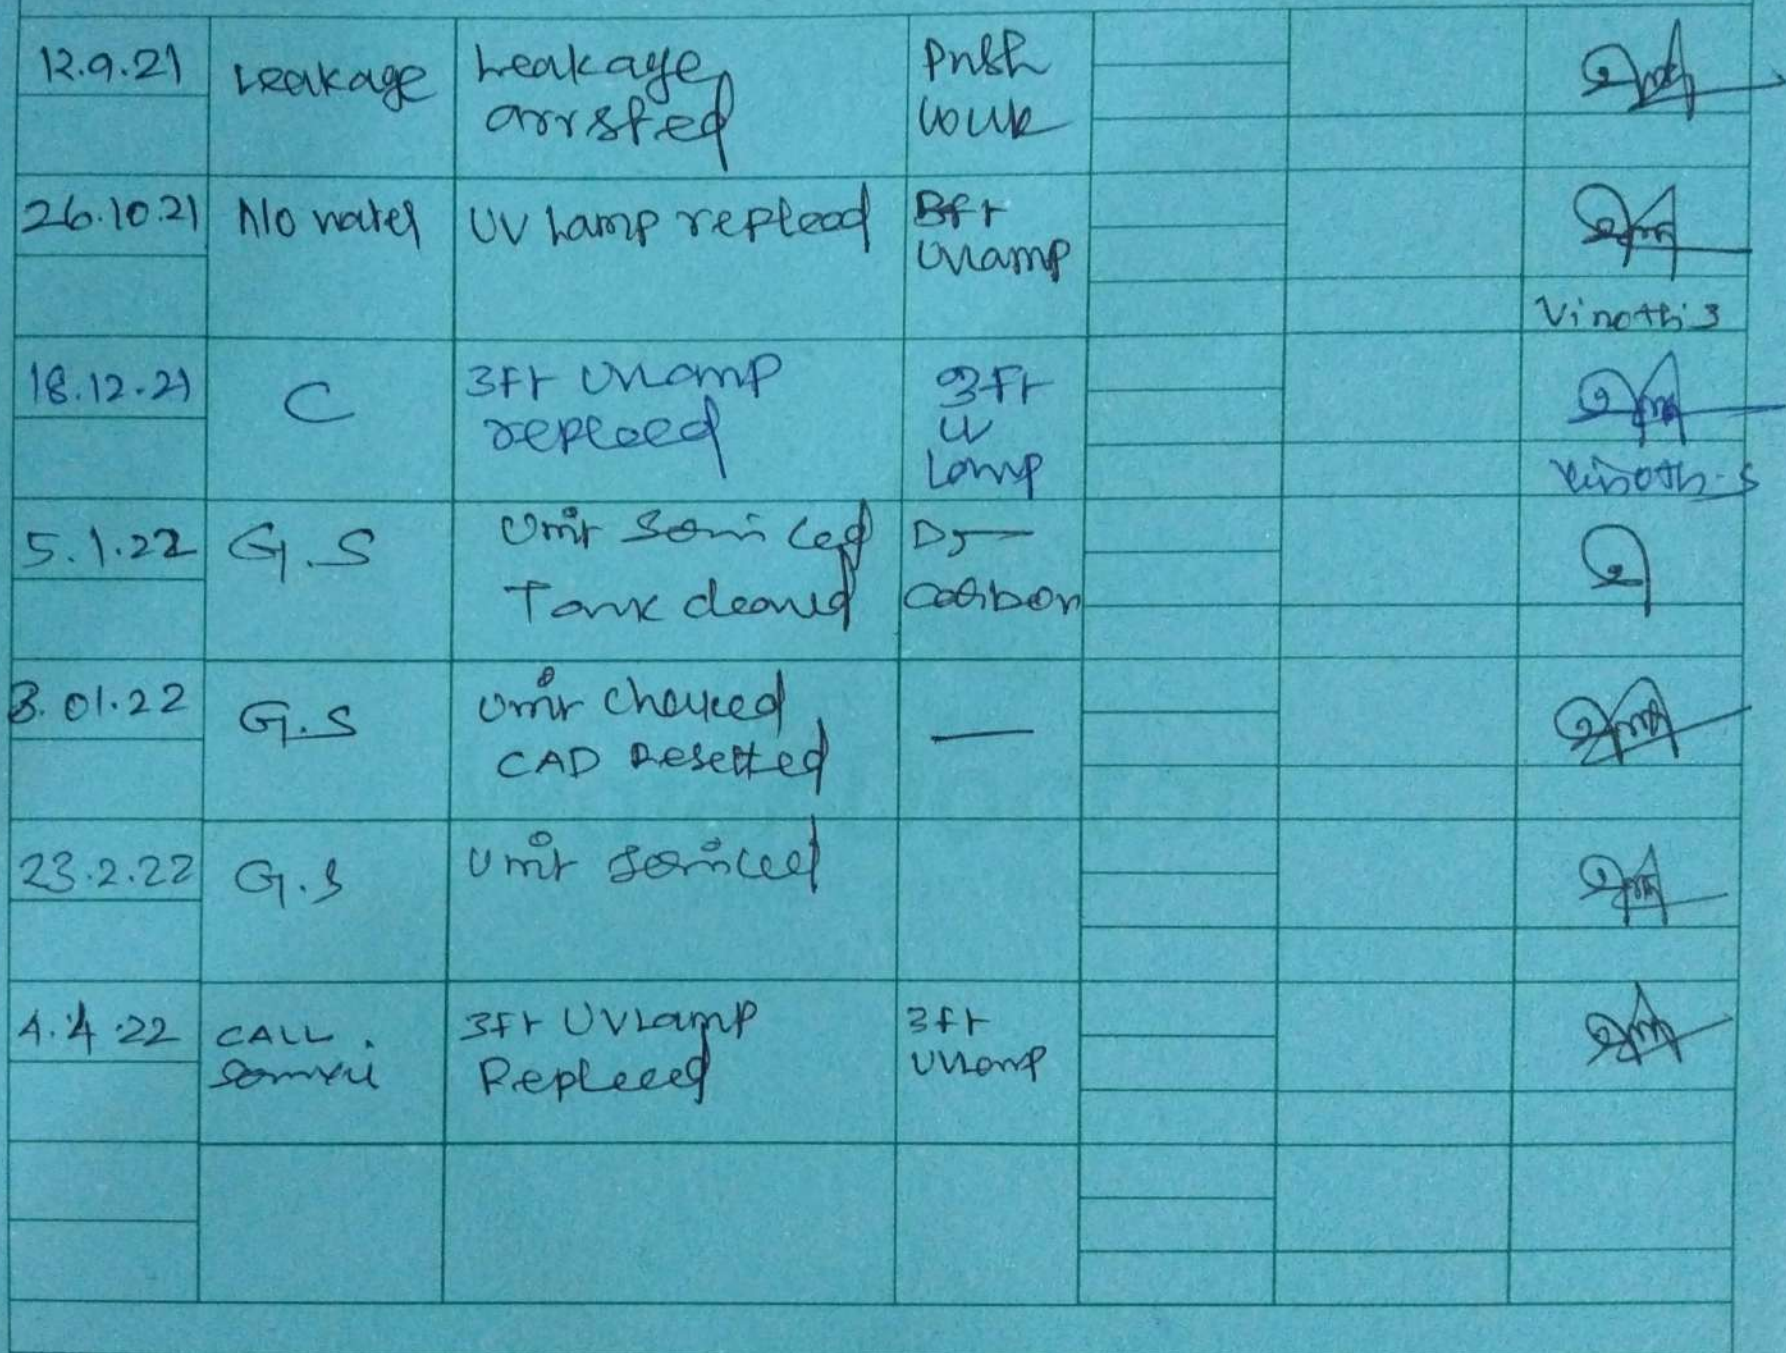 12.9.21
Leakage
Leakage
arrsted
Push
26.10.21
No water
UV Lamp replead
3ft
UVLamp
Vinoth.S
18.12.21
C
3Ft UVLamp
repleed
3Ft
UV
Lamp
Vinoth.S
5.1.22
G.S
Unit Serviced
Tank cleaned
Caribon
3.01.22
G.S
Unit Checked
CAD Resetted
—
23.2.22
G.S
Unit serviced
4.4.22
CALL.
3Ft UVLamp
Repleeed
3ft
UVLamp